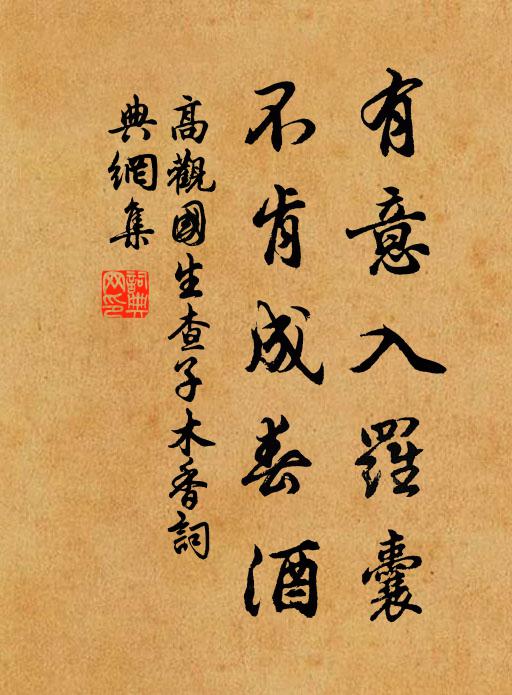 有意入羅囊
不肯成春酒
高觀國生查子木香詞
典網集
詞典網印